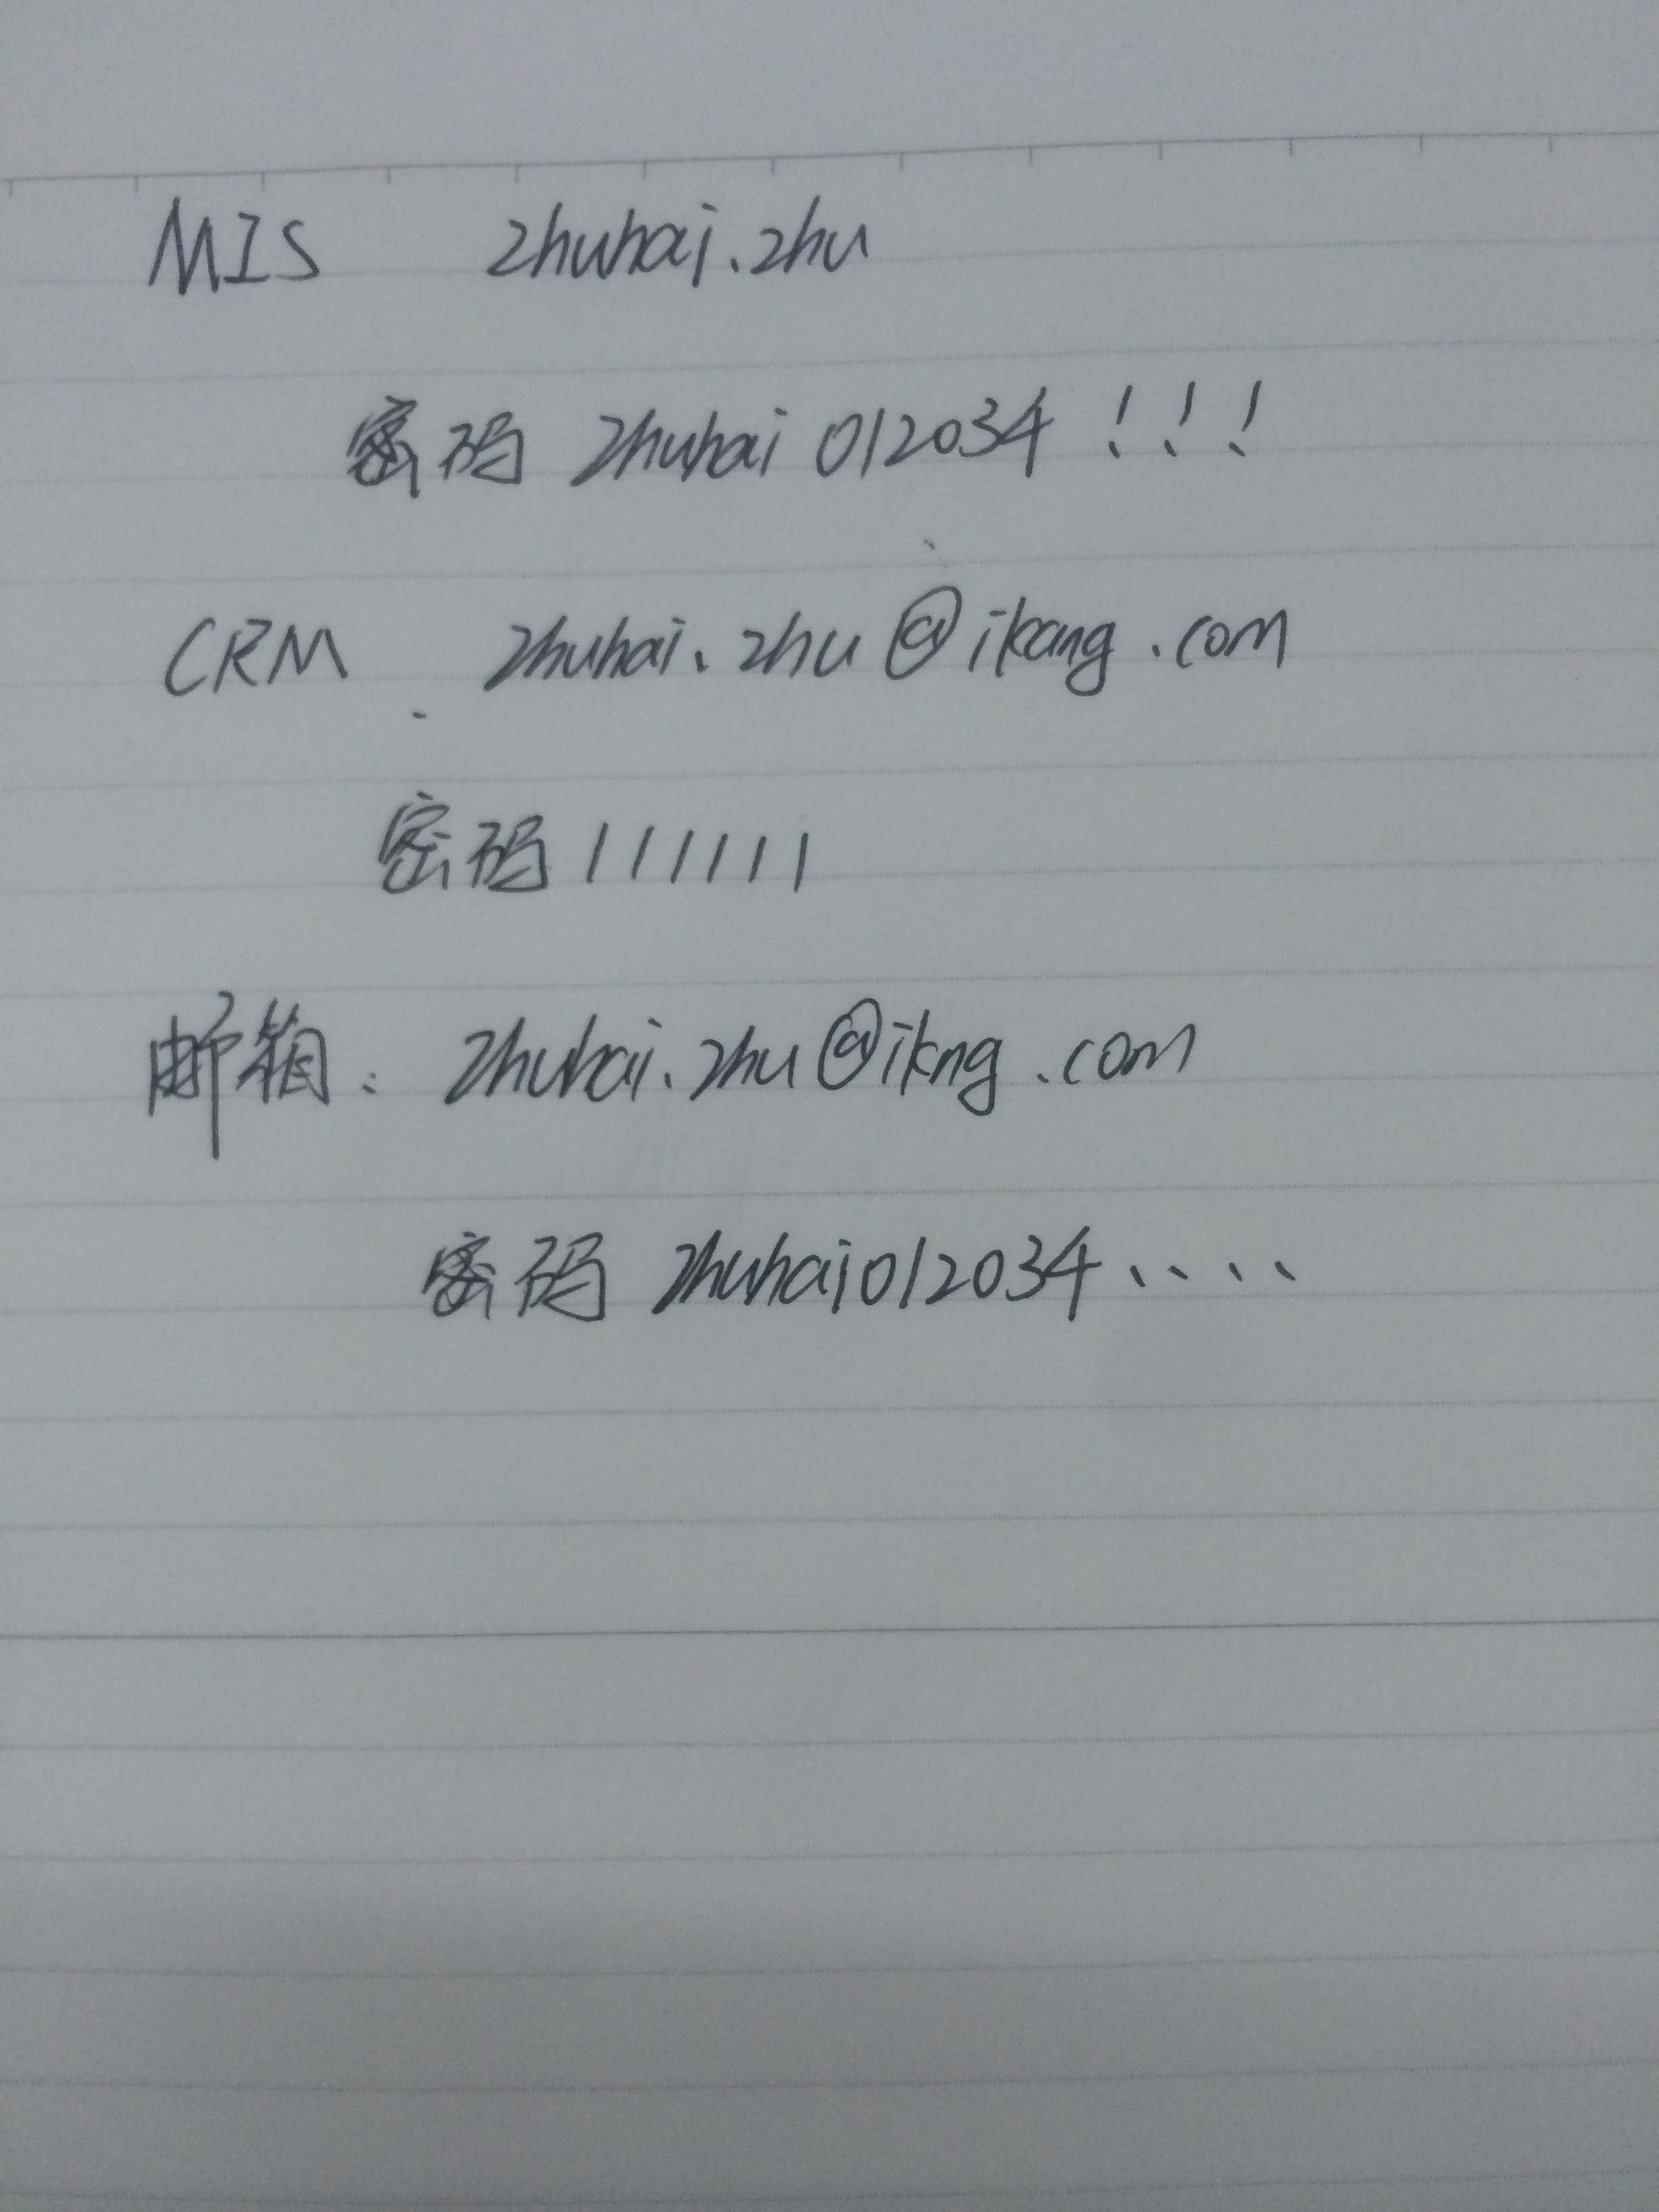 MIS zhuhai.zhu
密码 zhuhai 012034 ! ! !
CRM zhuhai.zhu@ikang.com
密码 111111
邮箱: zhuhai.zhu@ikng.com
密码 zhuhai012034....